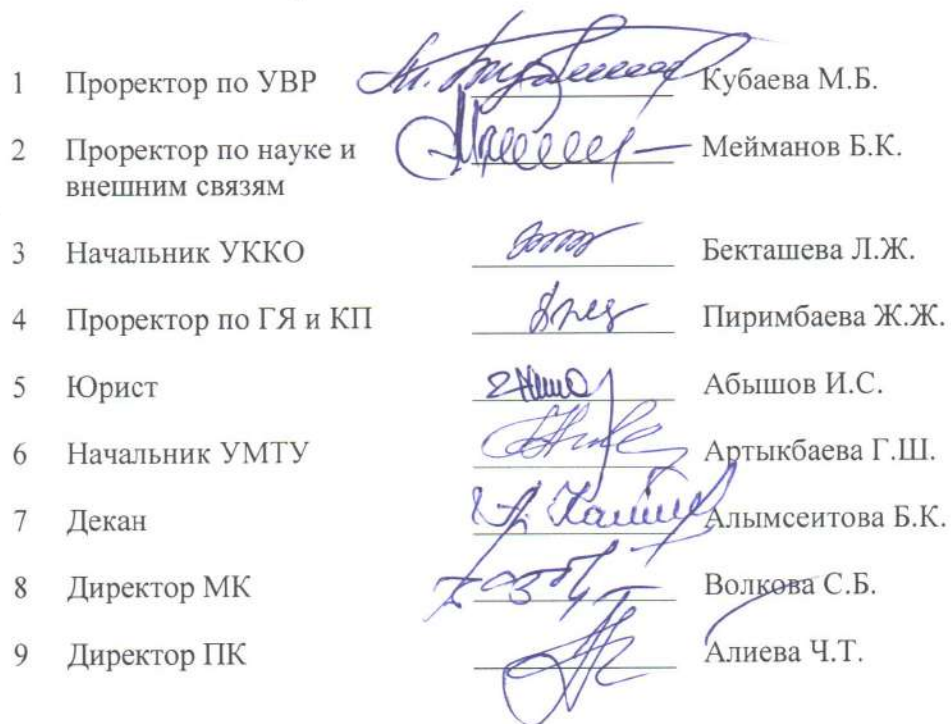 1 Проректор по УВР Кубаева М.Б.
2 Проректор по науке и Мейманов Б.К.
внешним связям
3 Начальник УККО Бекташева Л.Ж.
4 Проректор по ГЯ и КП Пиримбаева Ж.Ж.
5 Юрист Абышов И.С.
6 Начальник УМТУ Артыкбаева Г.Ш.
7 Декан Алымсеитова Б.К.
8 Директор МК Волкова С.Б.
9 Директор ПК Алиева Ч.Т.